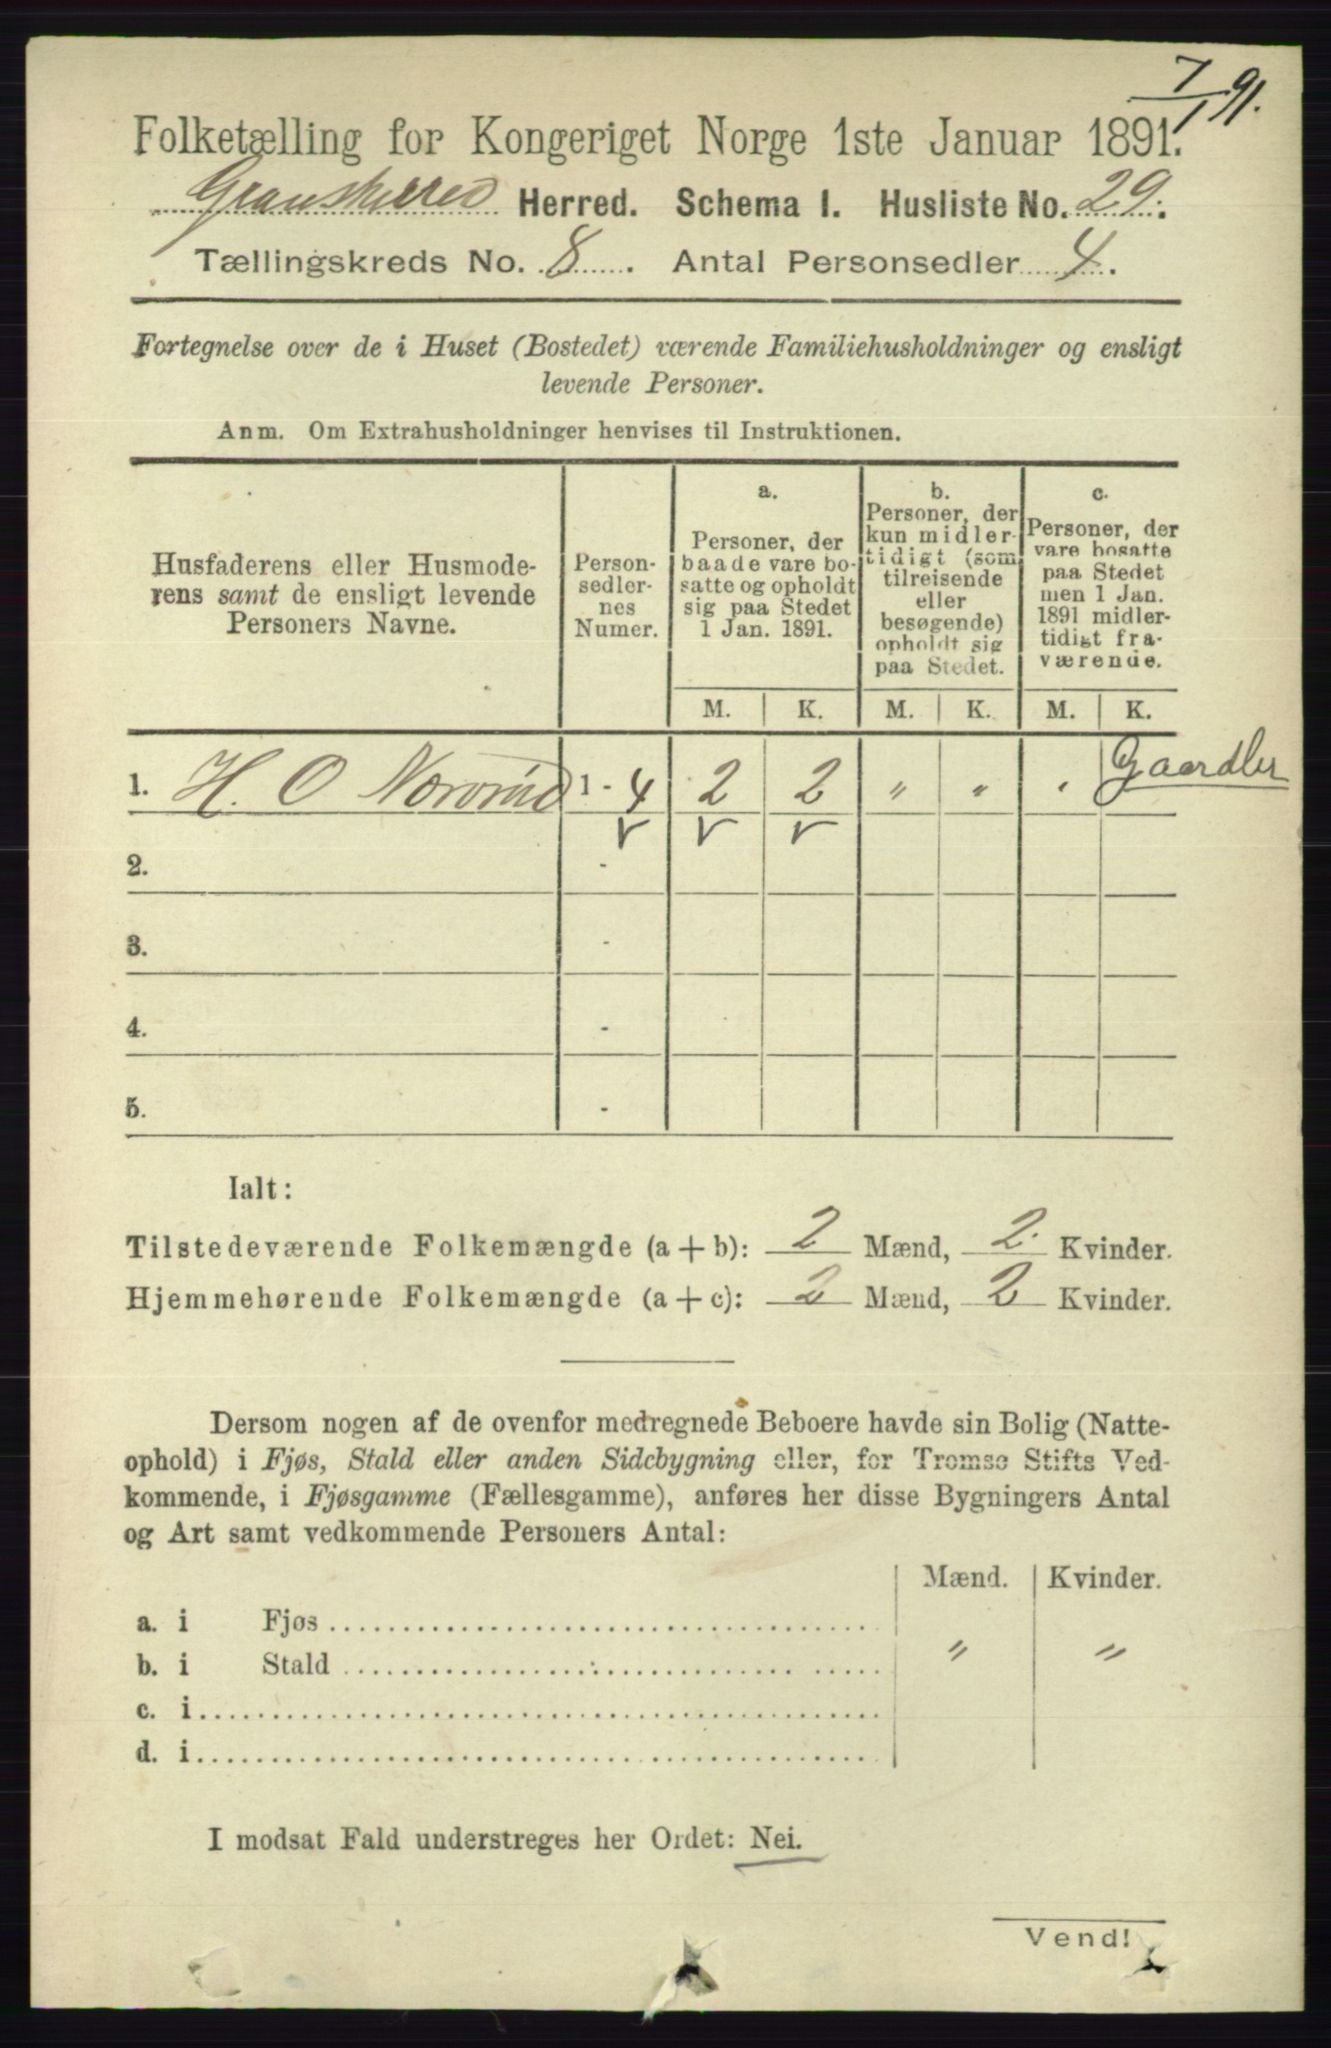 7/1 91.
Folketælling for Kongeriget Norge 1ste Januar 1891.
Gransherred Herred. Schema I. Husliste No. 29.
Tællingskreds No. 8. Antal Personsedler 4.
Fortegnelse over de i Huset (Bostedet) værende Familiehusholdninger og ensligt
levende Personer.
Anm. Om Extrahusholdninger henvises til Instruktionen.
Husfaderens eller Husmode-
rens samt de ensligt levende
Personers Navne.
Person-
sedler-
nes
Numer.
a.
Personer, der
baade vare bo-
satte og opholdt
sig paa Stedet
1 Jan. 1891.
b.
Personer, der
kun midler-
tidigt (som
tilreisende
eller
besøgende)
opholdt sig
paa Stedet.
c.
Personer, der
vare bosatte
paa Stedet
men 1 Jan.
1891 midler-
tidigt fra-
værende.
M. K. M. K. M. K.
1. H. O 1 - 4 2 2 " " " Gaardbr
2. -
3. -
4. -
5. -
Ialt:
Tilstedeværende Folkemængde (a + b): 2 Mænd, 2 Kvinder.
Hjemmehørende Folkemængde (a + c): 2 Mænd, 2 Kvinder.
Dersom nogen af de ovenfor medregnede Beboere havde sin Bolig (Natte-
ophold) i Fjøs, Stald eller anden Sidebygning eller, for Tromsø Stifts Ved-
kommende, i Fjøsgamme (Fællesgamme), anføres her disse Bygningers Antal
og Art samt vedkommende Personers Antal:
Mænd. Kvinder.
a. i Fjøs
b. i Stald " "
c. i
d. i
I modsat Fald understreges her Ordet: Nei.
Vend!